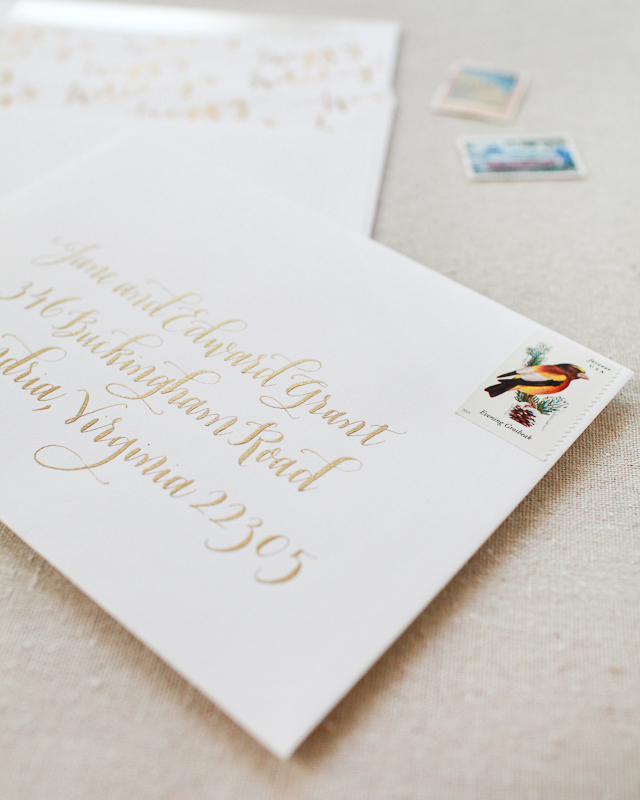 Jane and Edward Grant
346 Buckingham Road
ndria, Virginia 22305
Forever
USA
Evening Grosbeak